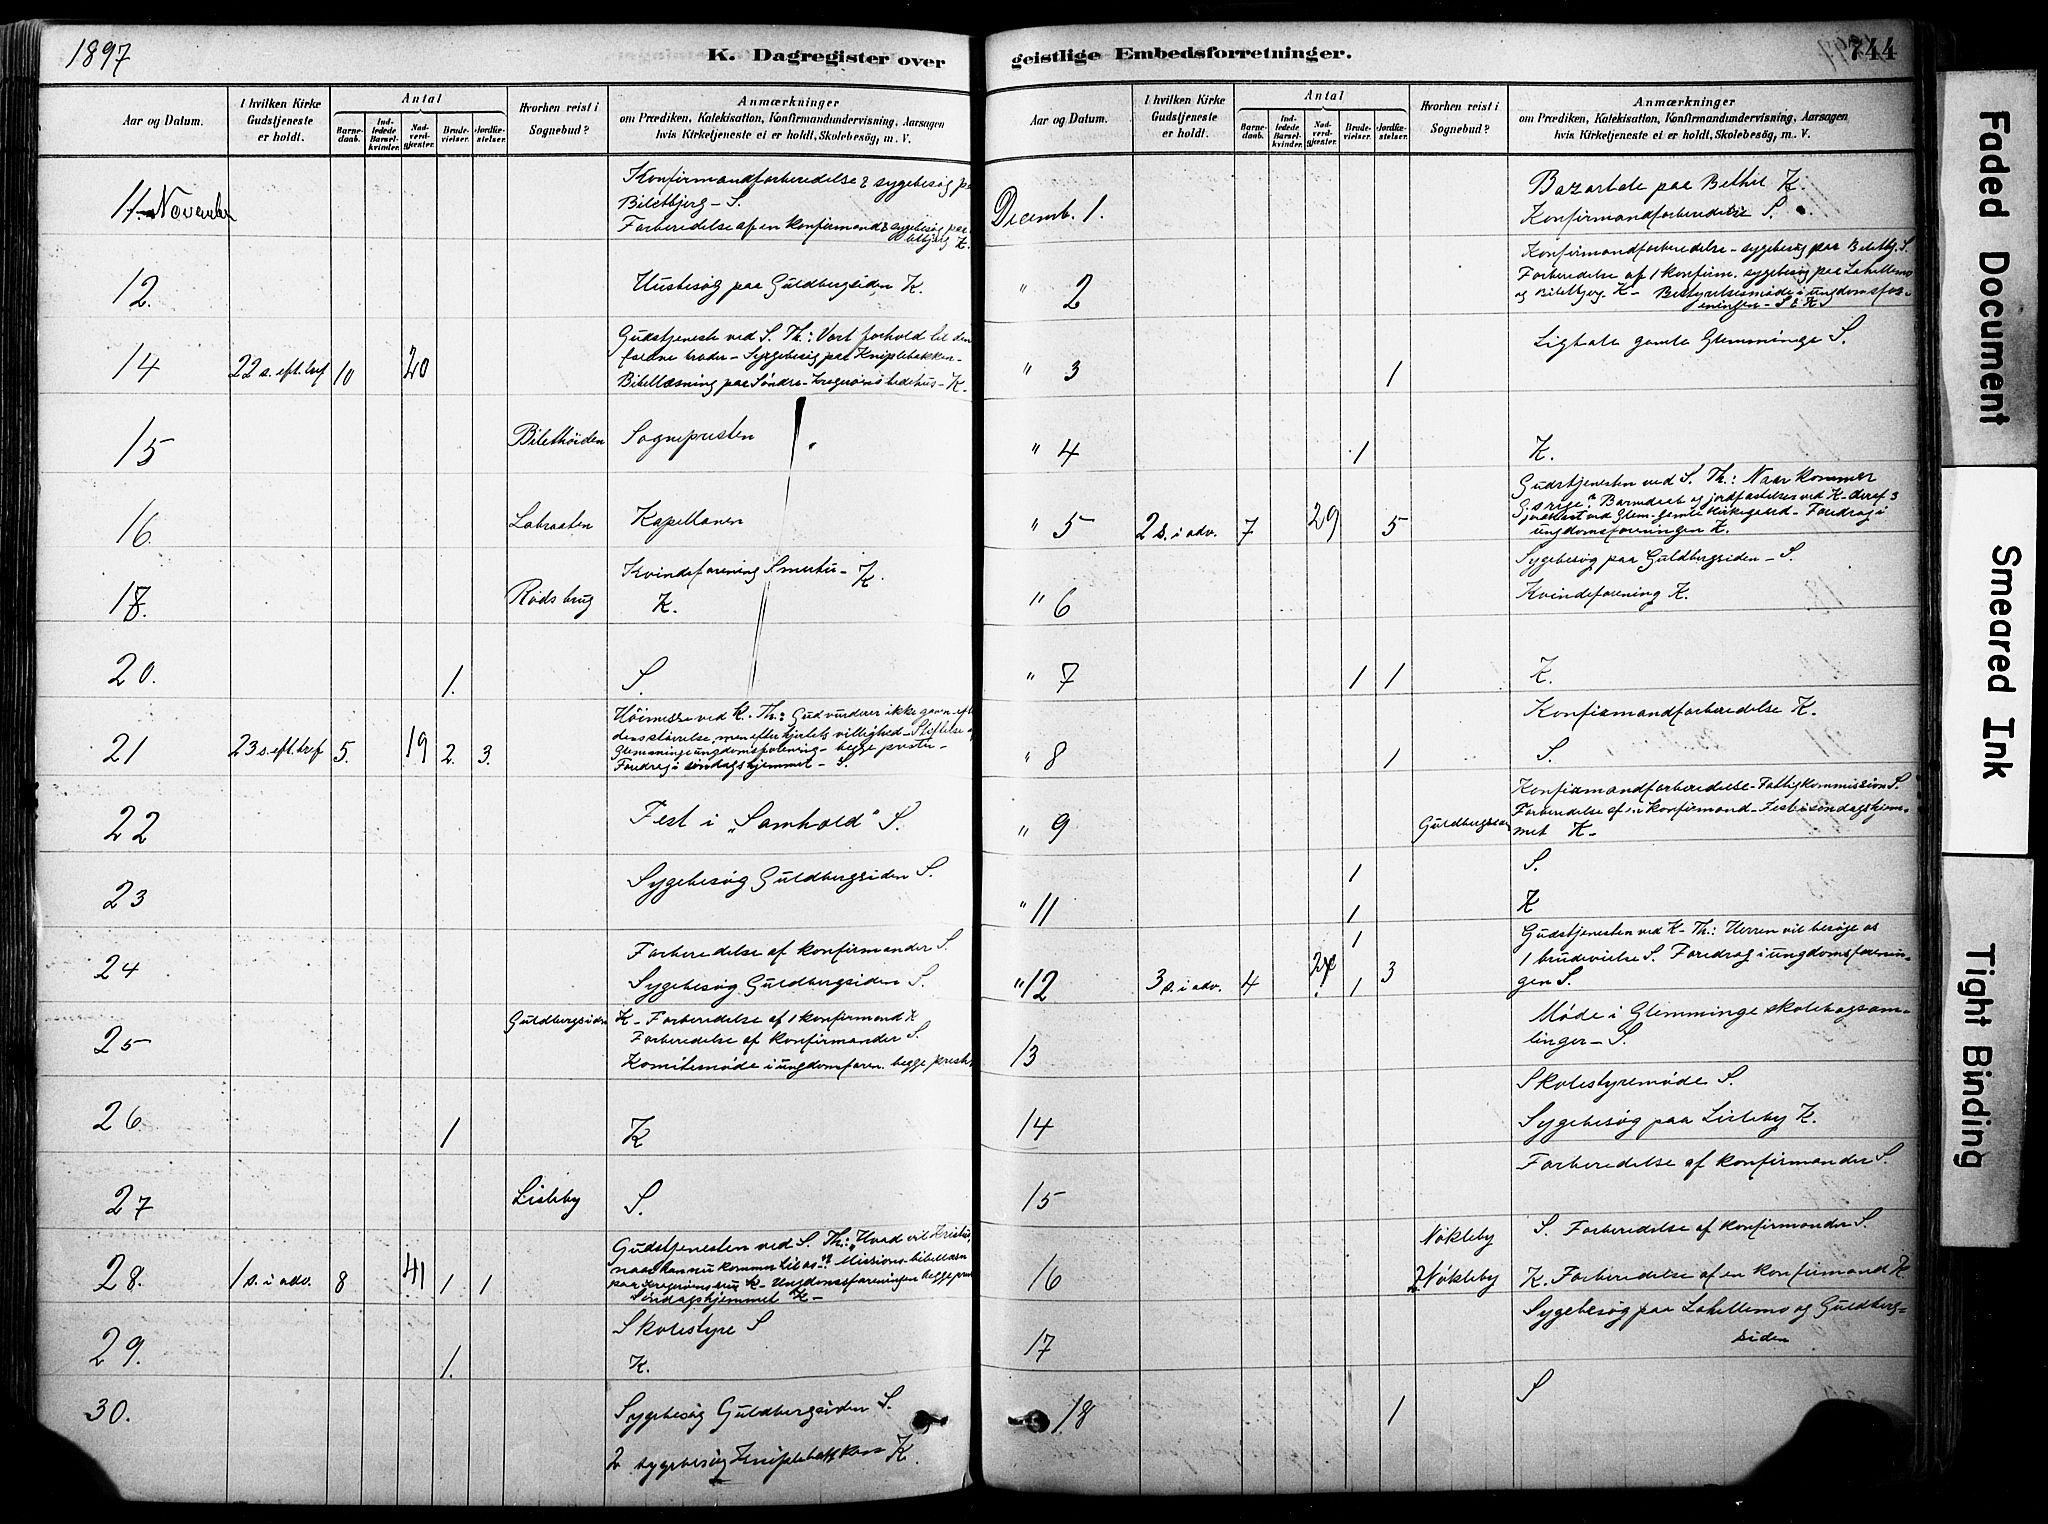 1897
K. Dagregister over
Aar og Datum.
I hvilken Kirke
Gudstjeneste
er holdt.
Antal
Barne-
daab.
Ind-
ledede
Barsel-
kvinder.
Nad-
verd-
gjester.
Brude-
vielser.
Jordfæ-
stelser.
Hvorhen reist i
Sognebud?
Anmærkninger
om Prædiken, Katekisation, Konfirmandundervisning, Aarsagen
hvis Kirketjeneste ei er holdt, Skolebesög, m. V.
11 November
Konfirmandforberedelse & sygebesøg pa
Biletbjerg – S.
Forberedelse af en konfirmand & sygebesøg paa
K.
12.
Husbesøg paa Guldbergsiden K.
14 22 s. eft. tref 10 20
Gudstjeneste ved S. Th.: Vort forhold til den
faldne broder – Sygebesøg paa Kniplebakken –
Bibellæsning paa Søndre bedehus – K.
15 Sognepresten
16. Kapellanen
Kvindeforening – K.
18. Røds brug K.
20. 1. S.
21 23 s. eft. tref 5. 19 2. 3.
Høimesse ved K. Th.: Gud vurderer ikke
densstørrelse, men efter hjertets villighed – Stiftelse
Glemminge ungdomsforening – begge prester –
Foredrag i søndagshjemmet – S.
22 Fest i „Samhold“ S.
23 Sygebesøg Guldbergsiden S.
24 Forberedelse af konfirmander S.
Sygebesøg Guldbergsiden S.
25 Guldbergsiden K – Forberedelse af 1 konfirmand K
Forberedelse af konfirmander S.
Komitemøde i ungdomsforen. begge prest.
26 1 K
27 Lisleby S.
28. 1 s. i adv. 8 41 1 1
Gudstjenesten ved S. Th.: „Hvad vil Kristus,
naar han nu kommer til os?“ Missions-bibellæsn
paa K – Ungdomsforeningen begge
Søndagshjemmet K –
29. Skolestyre S
1. K.
30. Sygebesøg Guldbergsiden S.
2 sygebesøg Kniplebakken K.
geistlige Embedsforretninger.
744
Aar og Datum.
I hvilken Kirke
Gudstjeneste
er holdt.
Antal
Barne-
daab.
Ind-
ledede
Barsel-
kvinder.
Nad-
verd-
gjester.
Brude-
vielser.
Jordfæ-
stelser.
Hvorhen reist i
Sognebud?
Anmærkninger
om Prædiken, Katekisation, Konfirmandundervisning, Aarsagen
hvis Kirketjeneste ei er holdt, Skolebesög, m. V.
Decemb. 1.
paa Bethel K.
Konfirmandforberedelse S.
" 2
Konfirmandforberedelse – sygebesøg paa Biletbj. S.
Forberedelse af 1 konfirm. sygebesøg paa Lahellemo
og Biletbjerg. K – Bestyrelsesmøde i ungdomsfor-
eningen – S & K.
" 3 1
Ligtale gamle Glemminge S.
" 4 1 K.
" 5 2 s. i adv. 7 29 5
Gudstjenesten ved S. Th.: Naar kommer
G.s rige? Barnedaab og jordfæstelser ved K. deraf 3
ved Glem. gamle kirkegaard – Foredrag i
ungdomsforeningen K.
" 6
Sygebesøg paa Guldbergsiden – S.
Kvindeforening K.
" 7 1 1 K.
Konfirmandforberedelse K.
" 8 1 S.
" 9
Konfirmandforberedelse – Fattigkommission S.
Forberedelse af en konfirmand – Fest i søndagshjem-
met K –
1 S.
" 11 1 K
" 12 3 s. i adv. 4 1 1 3
Gudstjenesten ved K – Th.: Herren vil besøge os
1 brudevielse S. Foredrag i ungdomsforenin-
gen S.
13
Møde i Glemminge skolebogsam-
linger – S.
Skolestyremøde S.
14 Sygebesøg paa Lisleby K.
Forberedelse af konfirmander S.
15
Nøkleby S. Forberedelse af konfirmander S.
16 Nøkleby K. Forberedelse af en konfirmand K
Sygebesøg paa Lahellemo og Guldberg-
siden
17
18 1 S
Faded Document
Smeared Ink
Tight Binding